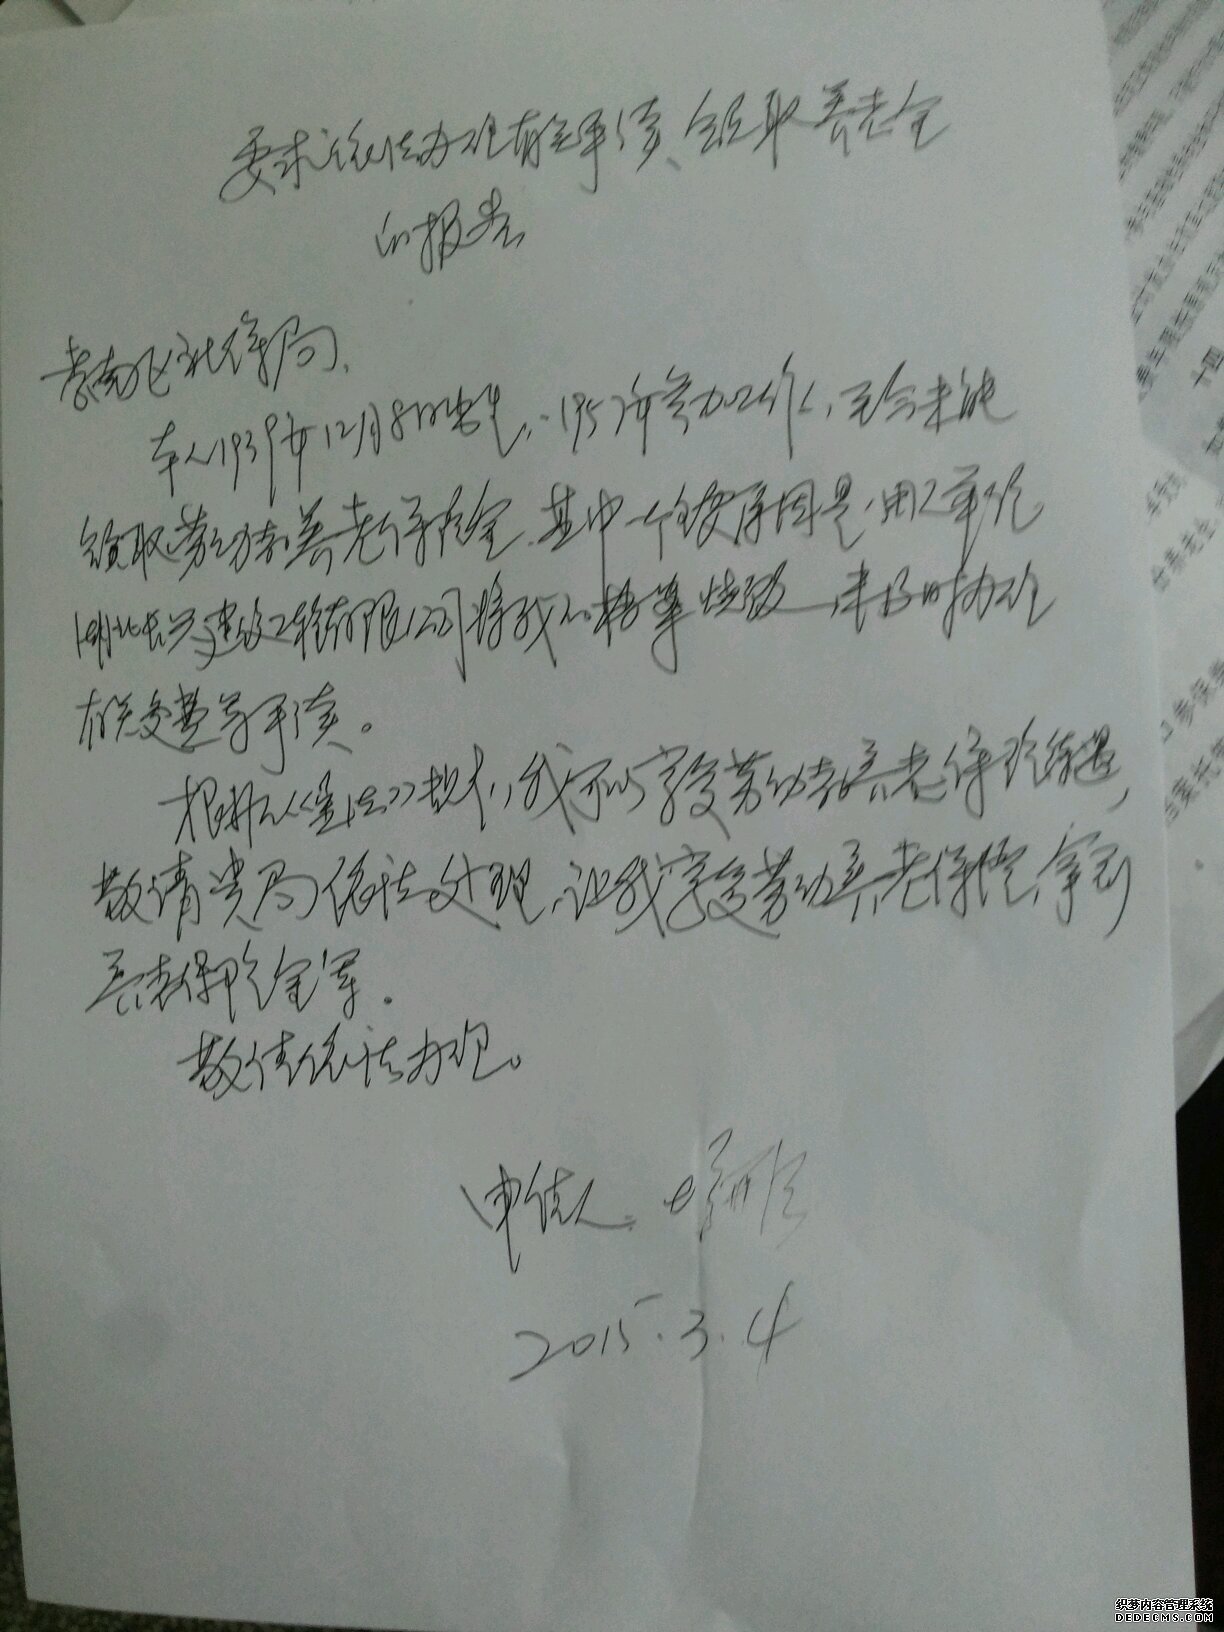 要求依法办理有关手续、领取养老金
的报告
孝南区社保局、
本人1939年12月8日出生，1957年参加工作，至今未能
领取劳动者养老保险金，其中一个主要原因是，用工单位
湖北长兴建设工程有限公司将我的档案烧毁，未及时办理
相关交费等手续。
根据《宪法》规定，我可以享受劳动者养老保险待遇，
敬请贵局依法处理，让我享受劳动养老保险，拿到
养老保险金等。
敬请依法办理。
申请人：
2015.3.4
织梦内容管理系统
DEDECMS.COM